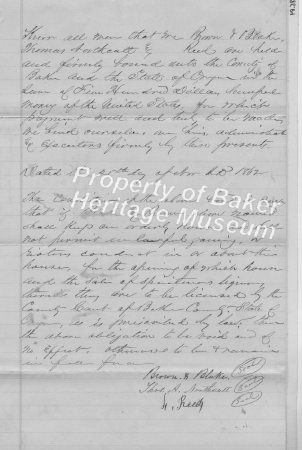 Know all men that we Brown & Blake,
Thomas Northcutt & Reed are held
and firmly bound unto the County of
Baker and the State of Oregon in the
Sum of Five Hundred Dollars Lawful
money of the United States for which
payment well and truly to be made
We bind ourselves our heirs administrators
& executors firmly by these presents.
Dated this day of Nov A.D. 1862
The of the above
that if
shall keep an orderly house
not permit unlawful gaming or
riotous conduct in or about the
houses, for the opening of which house
and the sale of Spirituous liquors
therein they are to be licensed by the
County Court of Baker County State of
Oregon, as is prescribed by law. then
the above obligation to be void and of
no effect. otherwise to be & remain
in force
Brown & Blake Seal
Thos. A. Northcutt Seal
Reed
Property of Baker
Heritage Museum